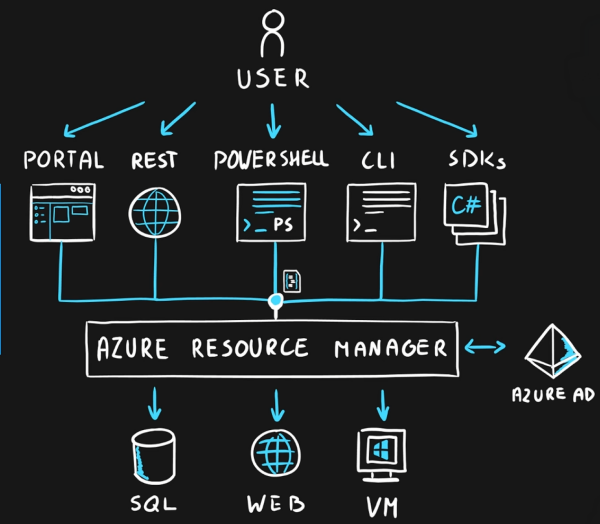 USER
PORTAL REST POWERSHELL CLI SDKs
C#
>_ PS >_
AZURE RESOURCE MANAGER
AZURE AD
SQL WEB VM